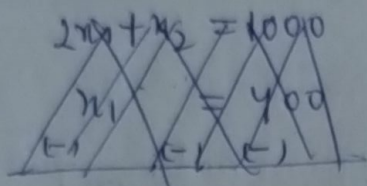 2x₁ + x₂ = 1000
x₁ = 400
(-) (-) (-)